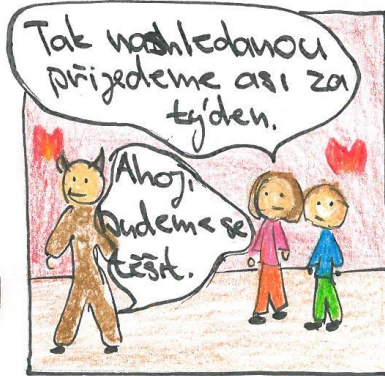 Tak nashledanou
přijedeme asi za
týden.
Ahoj,
budeme se
těšit.